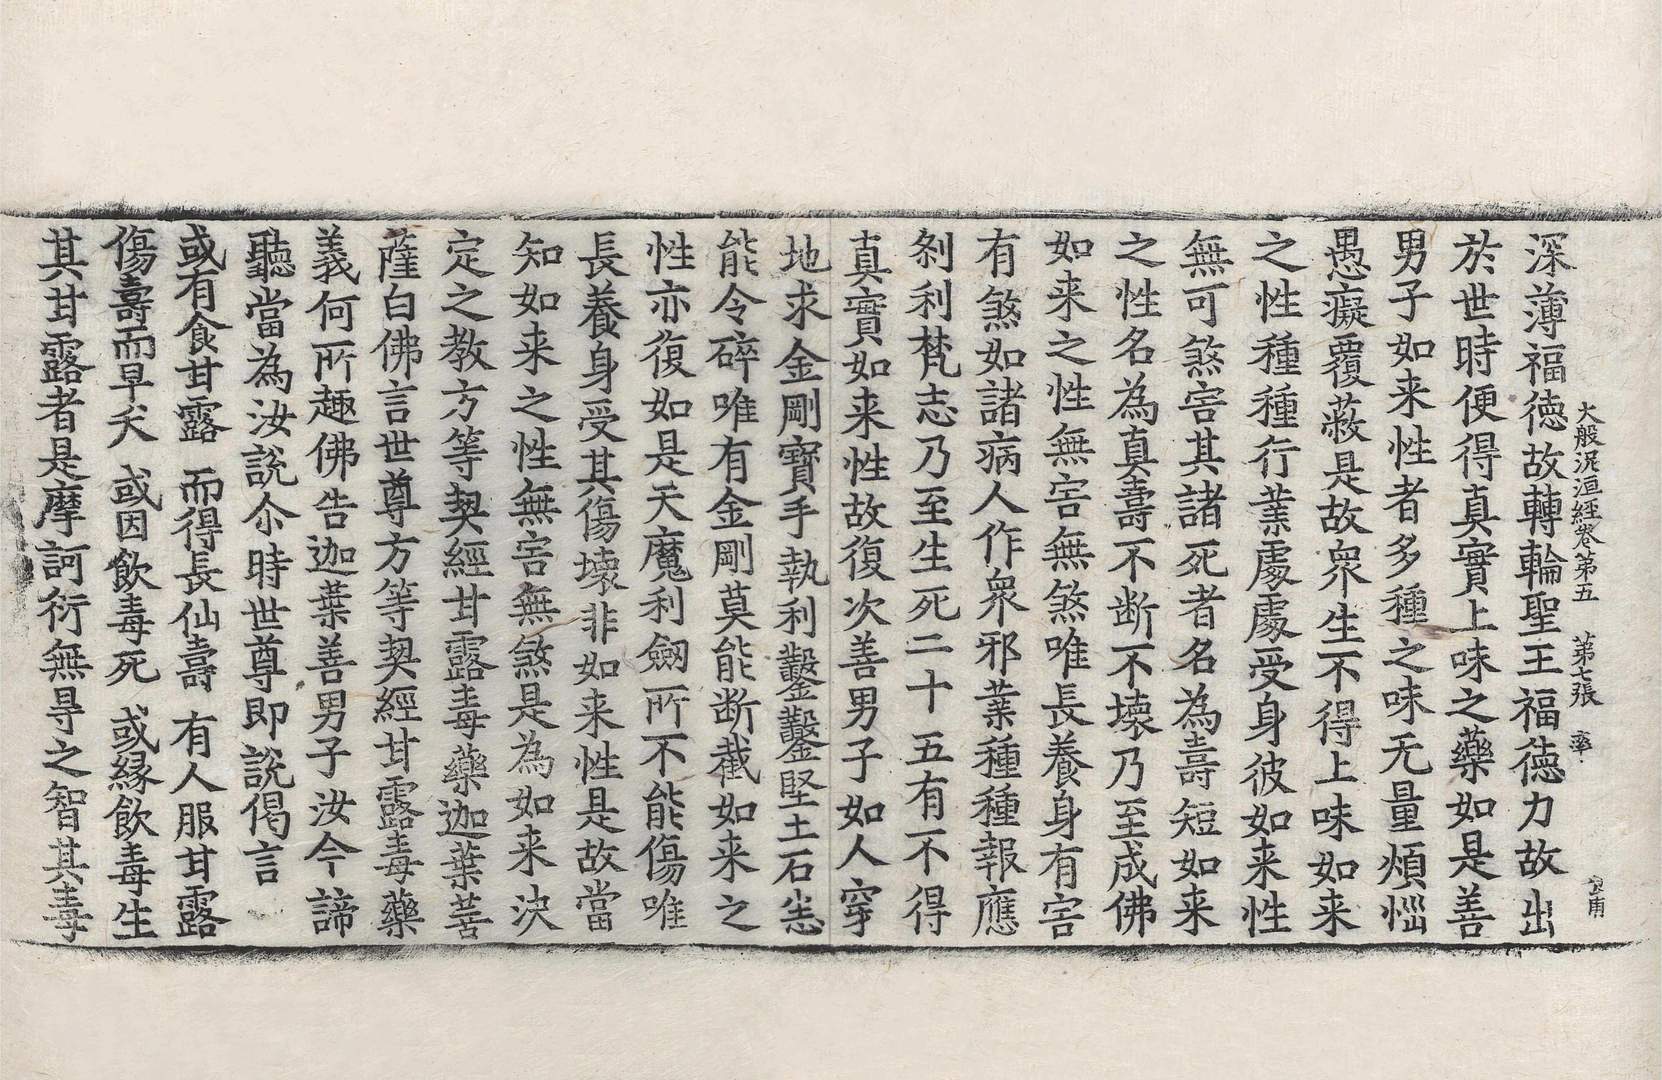 大般泥洹經卷第五　第七張　率
深薄福德故轉輪聖王福德力故出
於世時便得真實上味之藥如是善
男子如来性者多種之味无量煩惱
愚癡覆蔽是故衆生不得上味如来
之性種種行業處處受身彼如来性
無可煞害其諸死者名為壽短如来
之性名為真壽不断不壞乃至成佛
如来之性無害無煞唯長養身有害
有煞如諸病人作衆邪業種種報應
剎利梵志乃至生死二十五有不得
真實如来性故復次善男子如人穿
地求金剛寶手執利鑿鑿堅土石悉
能令碎唯有金剛莫能断截如来之
性亦復如是天魔利劒所不能傷唯
長養身受其傷壞非如来性是故當
知如来之性無害無煞是為如来决
定之教方等契經甘露毒藥迦葉菩
薩白佛言世尊方等契經甘露毒藥
義何所趣佛告迦葉善男子汝今諦
聽當為汝說尒時世尊即說偈言
或有食甘露　而得長仙壽　有人服甘露
傷壽而早夭　或因飲毒死　或緣飲毒生
其甘露者是摩訶衍無㝵之智其毒